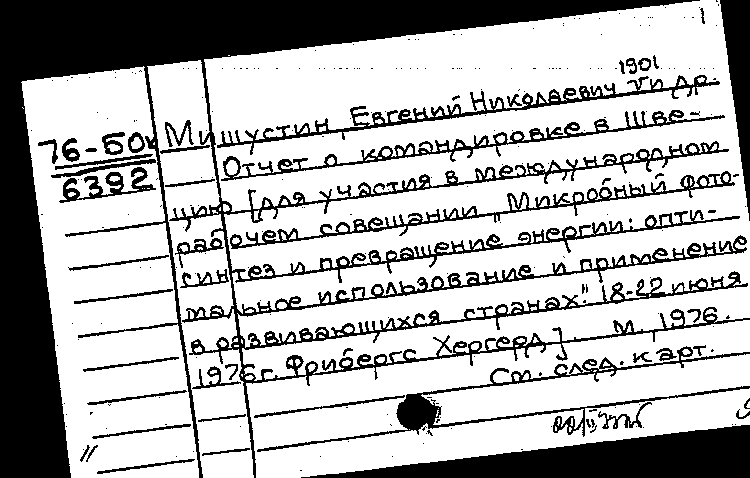 1
1901
76-50к Мишустин, Евгений Николаевич и др.
6392 Отчет о командировке в Шве-
цию [для участия в международном
рабочем совещании „Микробный фото-
синтез и превращение энергии: опти-
мальное использование и применение
в развивающихся странах". 18-22 июня
1976 г. Фрибергс Хергерд]. М., 1976.
См. след. карт.